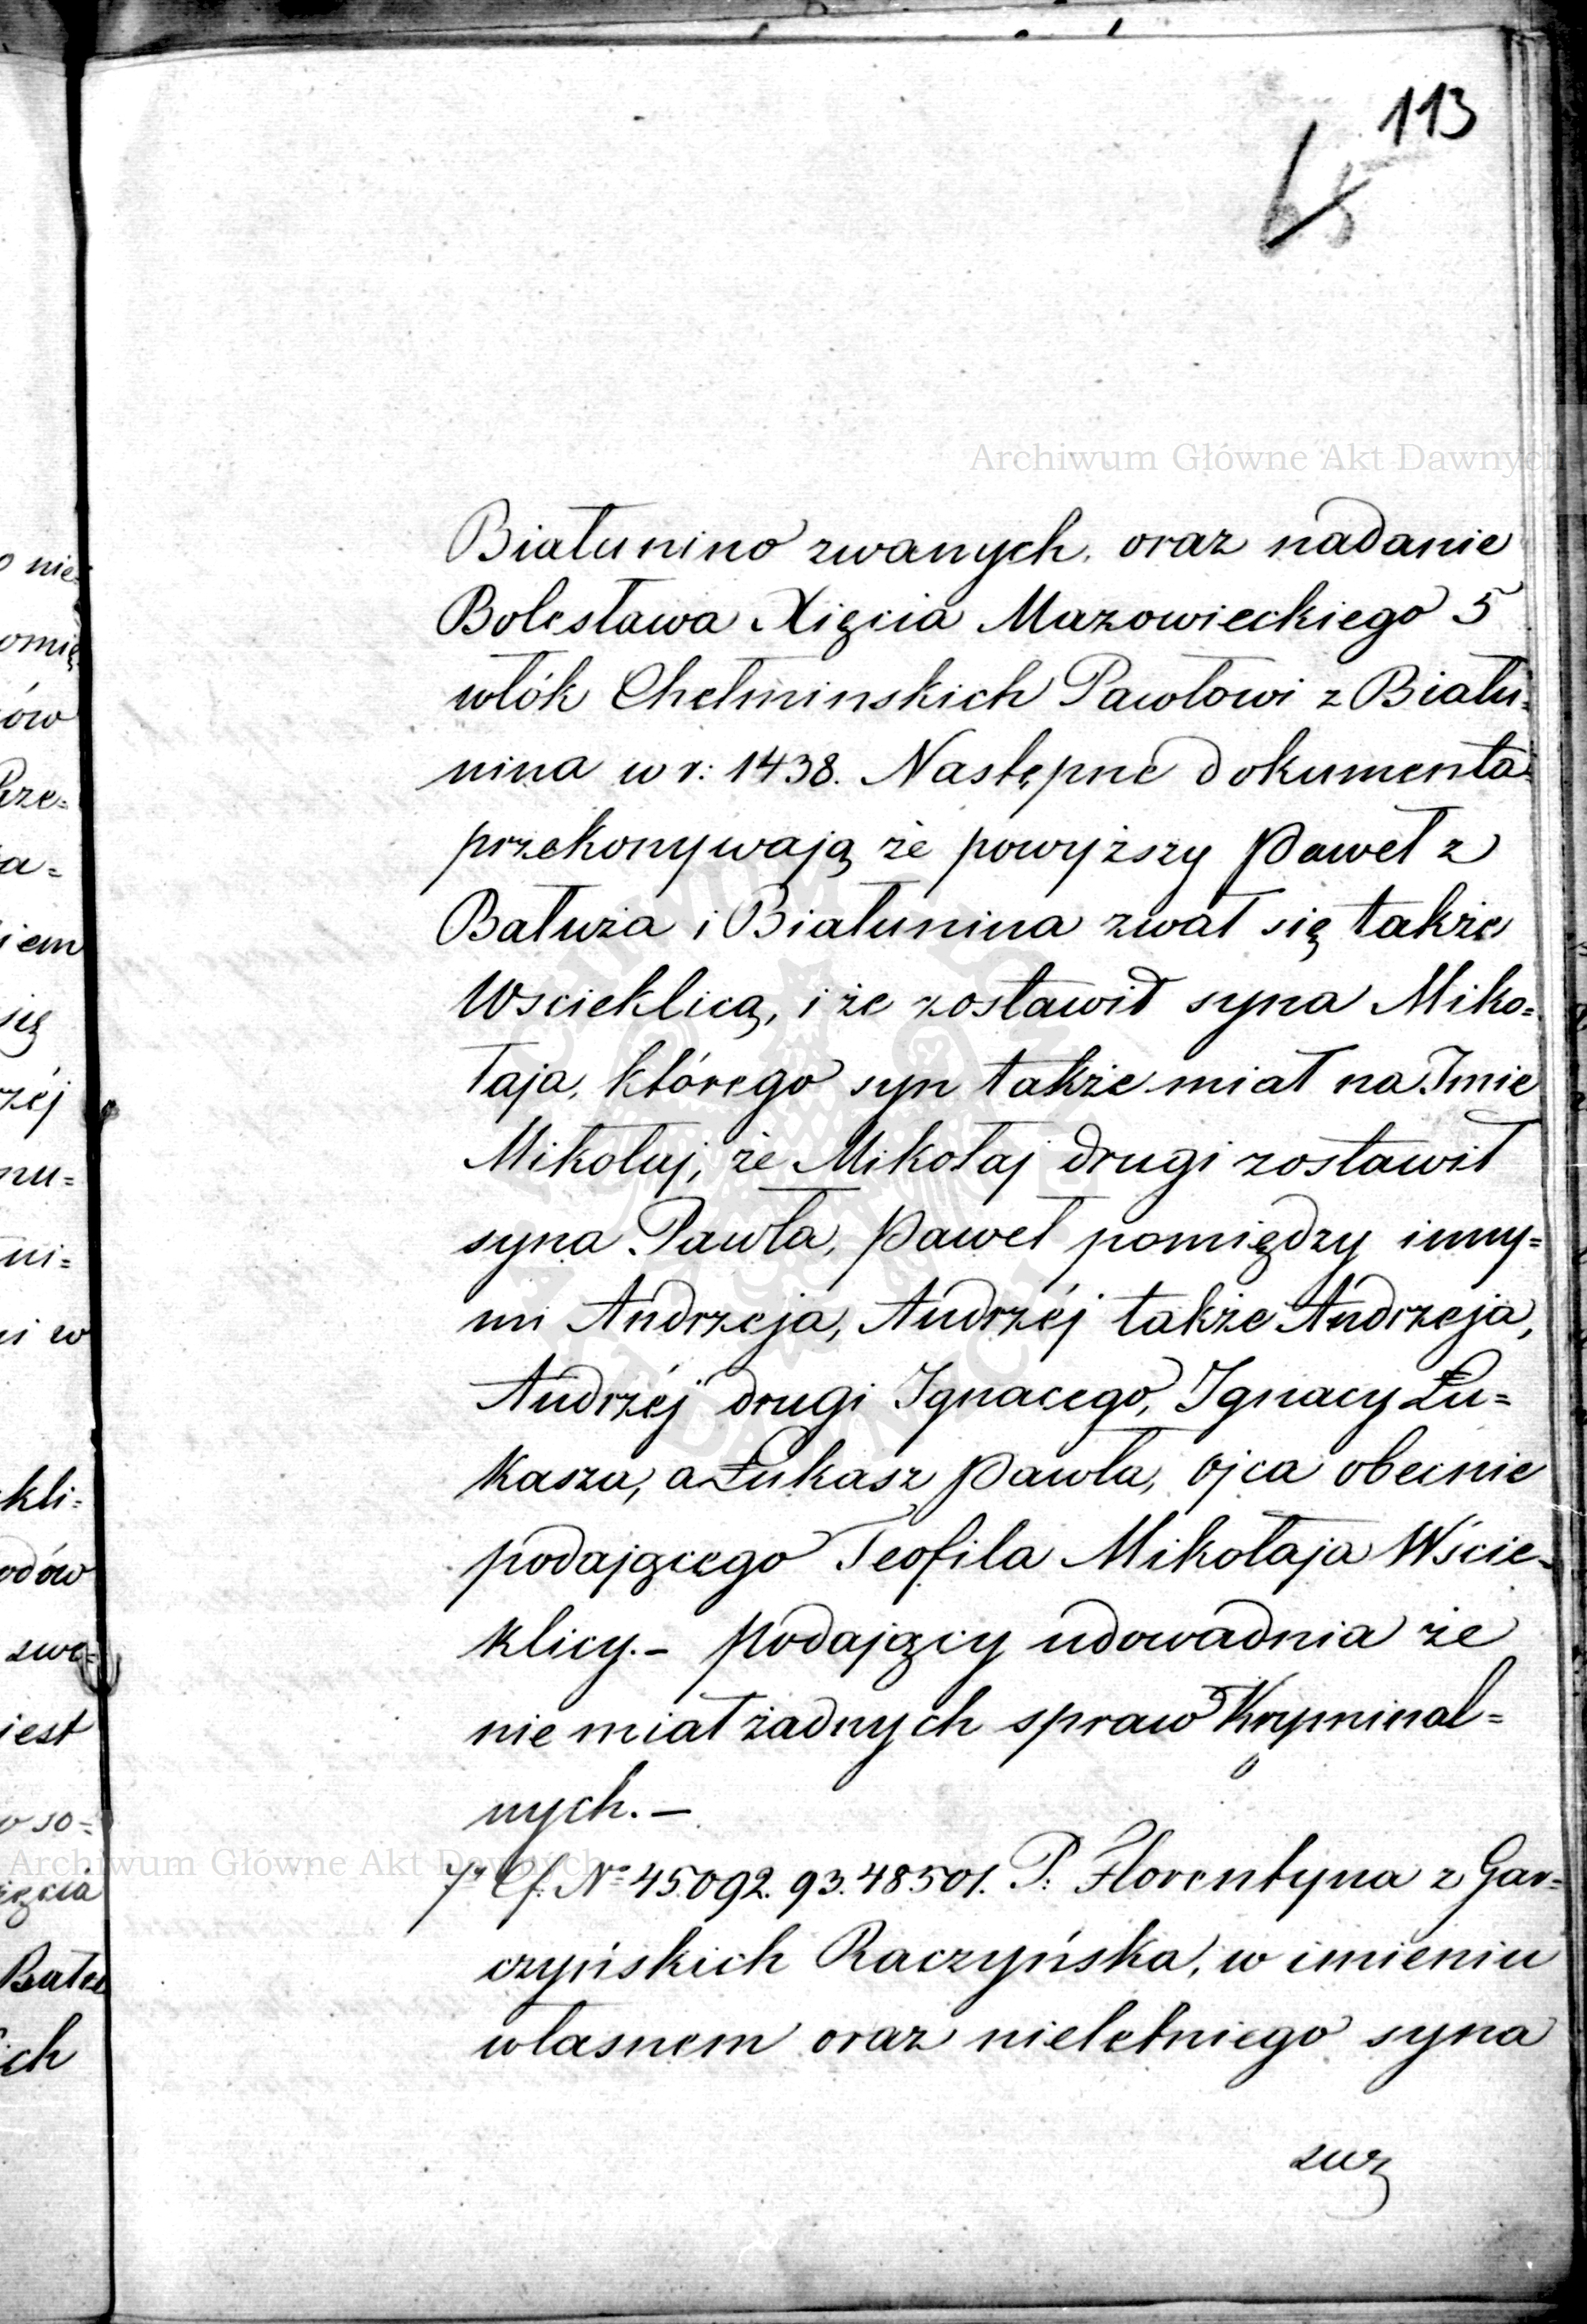 113
65
Archiwum Główne Akt Dawnych
Białunino zwanych, oraz nadanie
Bolesława Xięcia Mazowieckiego 5
włók Chełminskich Pawłowi z Biału=
nina w r: 1438. Następne dokumenta
przekonywają że powyższy Paweł z
Bałuża i Białunina zwał się także
Wscieklicą, i że zostawił syna Miko=
łaja, którego syn także miał na Imie
Mikołaj, że Mikołaj drugi zostawił
syna Pawła, Paweł pomiędzy inny=
mi Andrzeja, Andrzéj także Andrzeja,
Andrzéj drugi Ignacego, Ignacy Łu=
kasza, a Łukasz Pawła, ojca obecnie
podającego Teofila Mikołaja Wście=
klicy.– Podający udowadnia że
nie miał żadnych spraw Kryminal=
nych.–
Archiwum Główne Akt Dawnych
N° 45.092. 93. 48.501. P. Florentyna z Gar=
czyńskich Raczyńska, w imieniu
własnem oraz nieletniego syna
swo